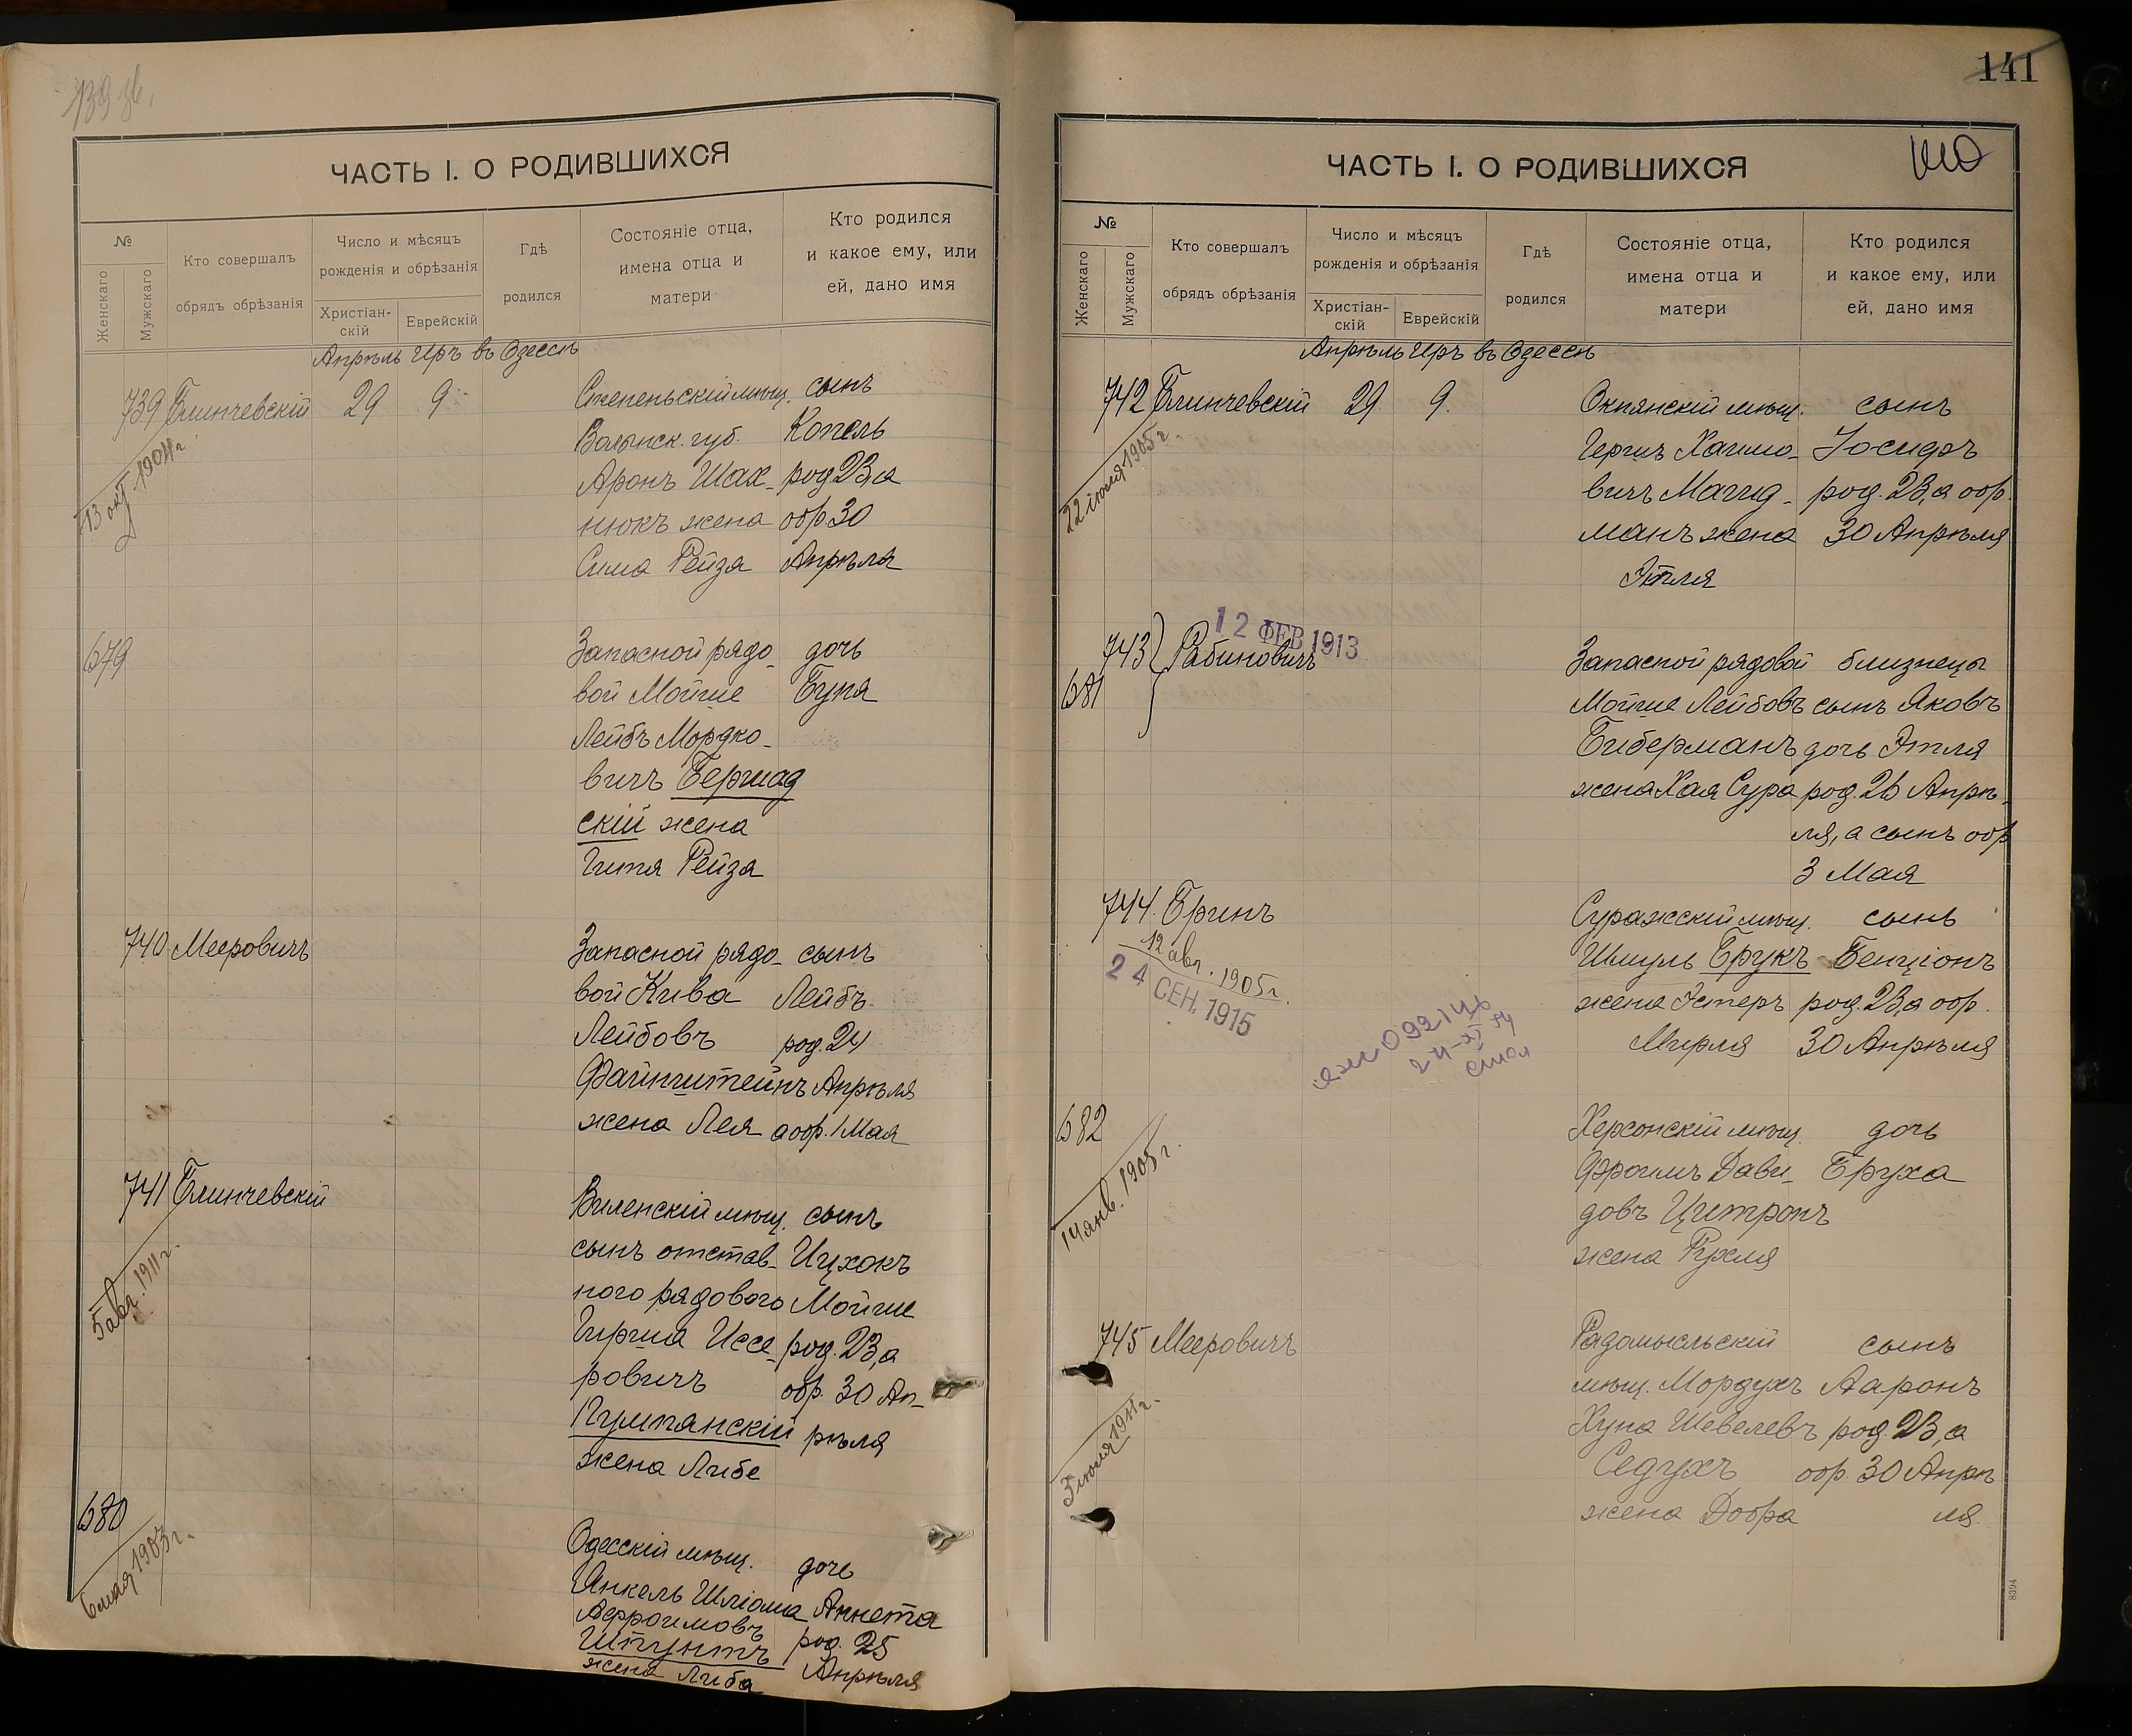 ЧАСТЬ I. О РОДИВШИХСЯ
№
Женскаго
Мужскаго
Кто совершалъ
обрядъ обрѣзанія
Число и мѣсяцъ
рожденія и обрѣзанія
Христіан-
скій
Еврейскій
Гдѣ
родился
Состояніе отца,
имена отца и
матери
Кто родился
и какое ему, или
ей, дано имя
Апрѣль Иръ въ Одессѣ
739 Блинчевскій 29 9
13 окт. 1904 г.
Степеньскій мѣщ.
Волынск. губ.
Аронъ Шах-
нюкъ жена
Сима Рейза
сынъ
Копель
род 23, а
обр 30
Апрѣля
679
Запасной рядо-
вой Мойше
Лейбъ Мордко-
вичъ Бершад
скій жена
Гитя Рейза
дочь
Буня
740 Мееровичъ
Запасной рядо-
вой Кива
Лейбовъ
Файнштейнъ
жена Лея
сынъ
Лейбъ
род. 24
Апрѣля
а обр. 1 Мая
741 Блинчевскій
5 авг. 1911 г.
Виленскій мѣщ.
сынъ отстав-
ного рядового
Гирша Иссе-
ровичъ
Пумпянскій
жена Либе
сынъ
Ицхокъ
Мойше
род. 23, а
обр. 30 Ап-
рѣля
680
6 мая 1903 г.
Одесскій мѣщ.
Янкель Шліома
Аврроимовъ
Шпунтъ
жена Либа
дочь
Аннета
род. 25
Апрѣля
141
ЧАСТЬ I. О РОДИВШИХСЯ
№
Женскаго
Мужскаго
Кто совершалъ
обрядъ обрѣзанія
Число и мѣсяцъ
рожденія и обрѣзанія
Христіан-
скій
Еврейскій
Гдѣ
родился
Состояніе отца,
имена отца и
матери
Кто родился
и какое ему, или
ей, дано имя
Апрѣль Иръ въ Одессѣ
742 Блинчевскій 29 9.
22 іюля 1905 г.
Окнянскій мѣщ.
Гершъ Хаимо-
вичъ Магид-
манъ жена
Этля
сынъ
Іосифъ
род. 23, а обр.
30 Апрѣля
12 ФЕВ 1913
743 Рабиновичъ
681
Запасной рядовой
Мойше Лейбовъ
Биберманъ
жена Хая Сура
близнецы
сынъ Яковъ
дочь Этля
род. 26 Апрѣ-
ля, а сынъ обр
3 Мая
744. Бринъ
12 авг. 1905 г.
24 СЕН. 1915
Суражскій мѣщ.
Шмуль Брукъ
жена Эстеръ
Мирля
сынъ
Бенціонъ
род. 23, а обр.
30 Апрѣля
682
14 янв. 1905 г.
Херсонскій мѣщ.
Фроимъ Дави-
довъ Цитронъ
жена Рухля
дочь
Бруха
745 Мееровичъ
3 іюля 1911 г.
Радомысльскій
мѣщ. Мордухъ
Хуна Шевелевъ
Седухъ
жена Добра
сынъ
Ааронъ
род 23, а
обр. 30 Апрѣ
ля.
8394